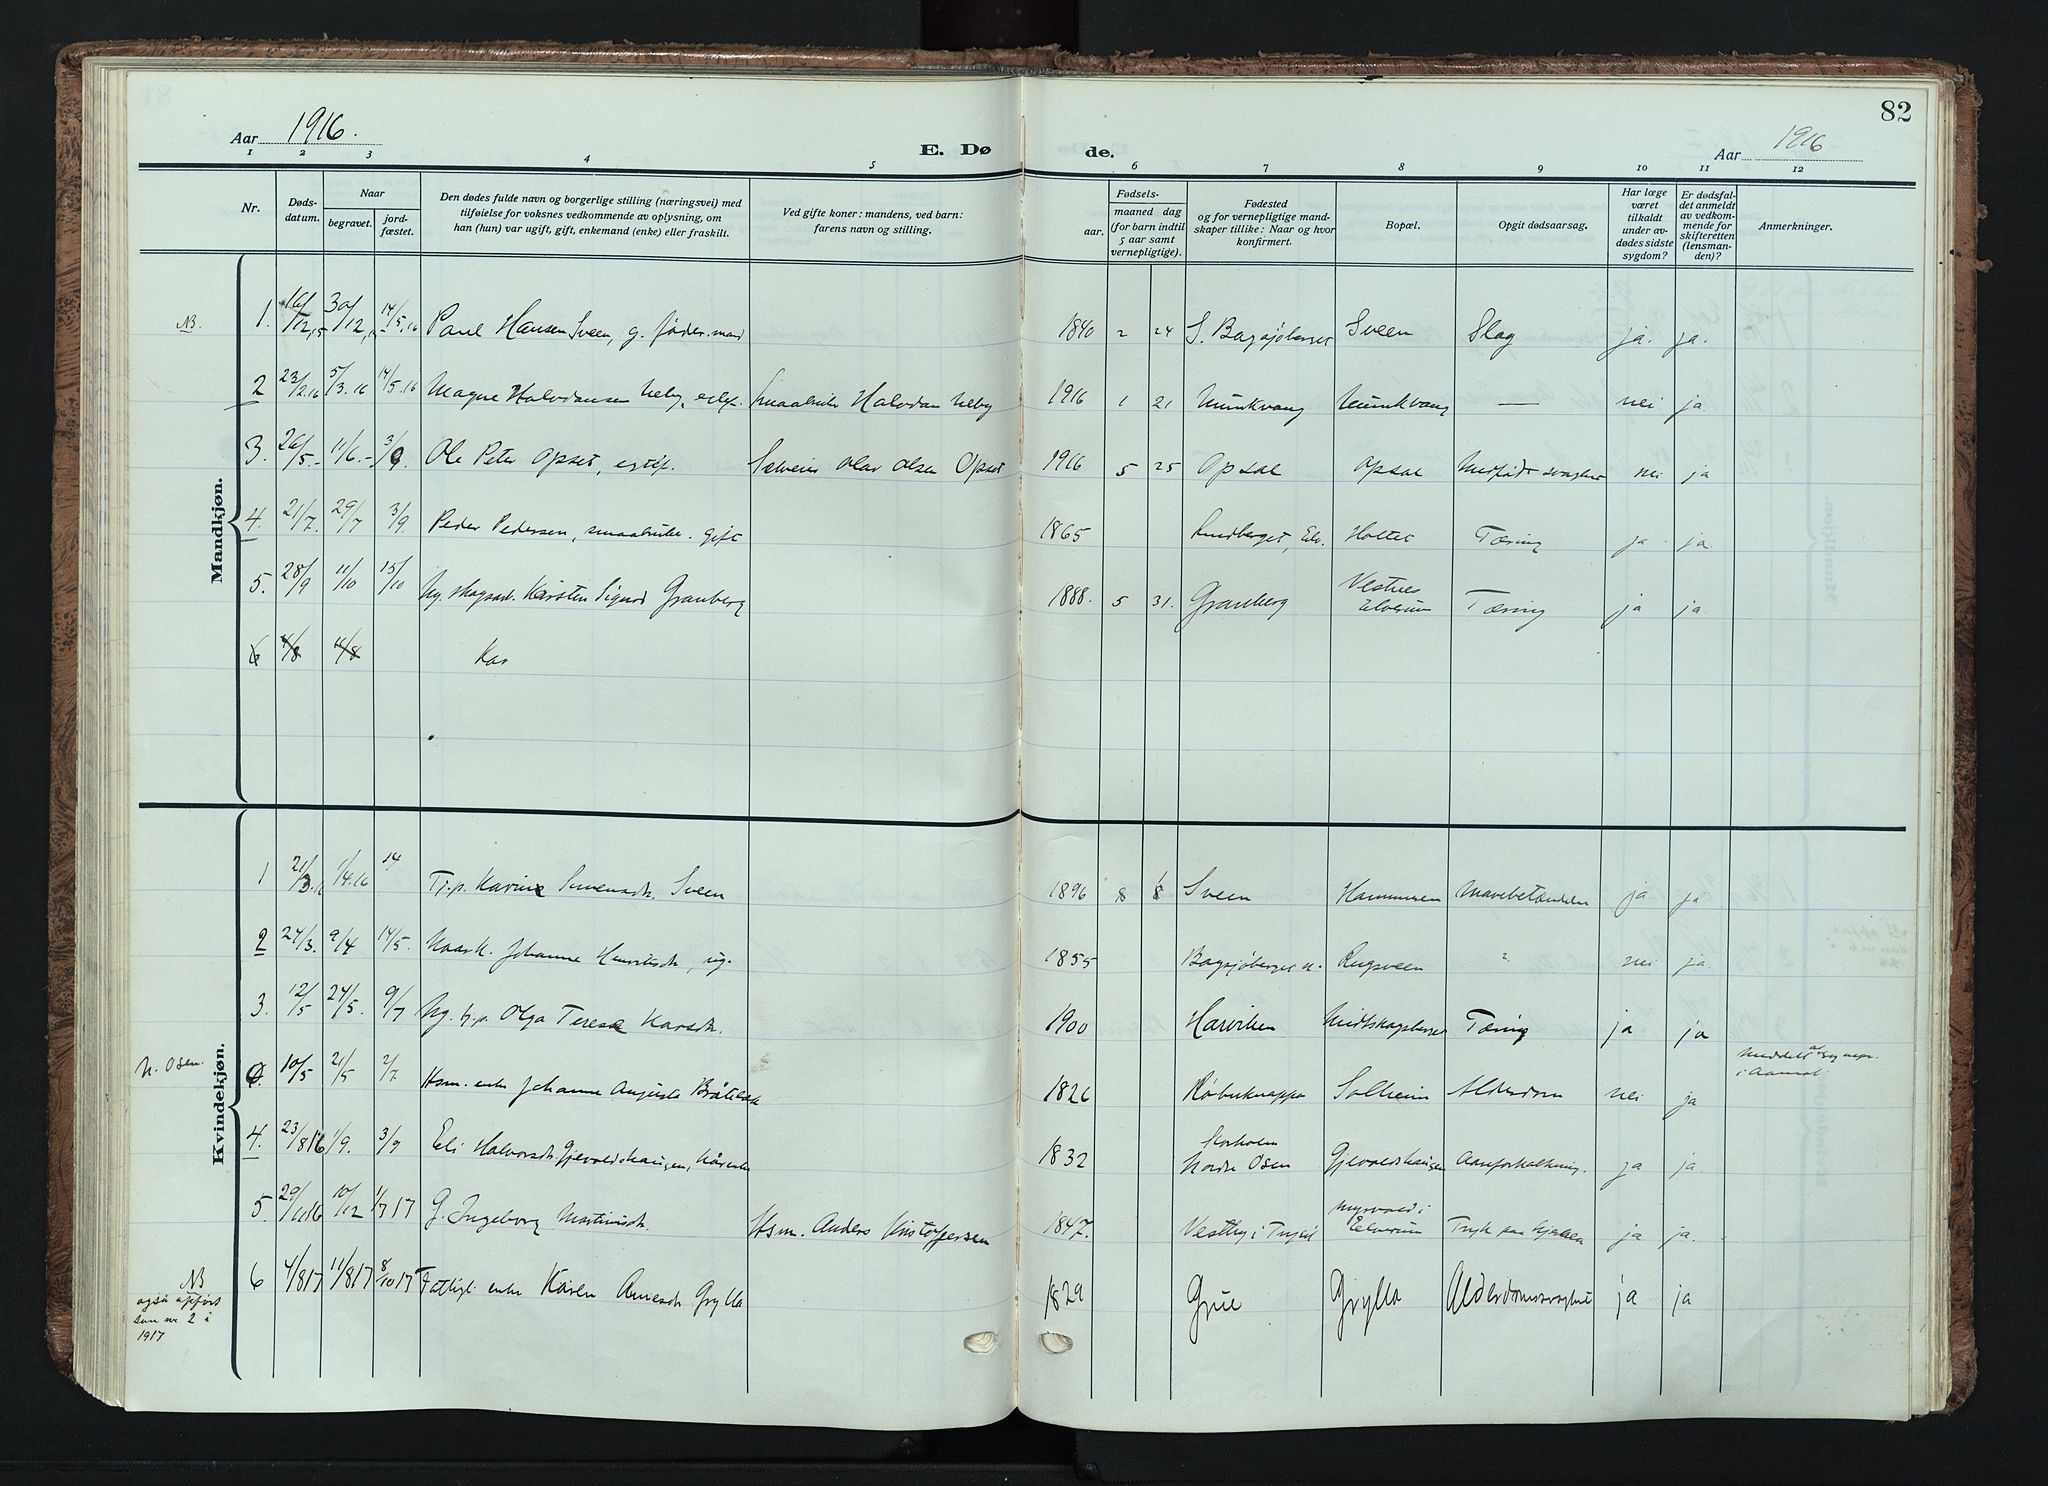 82
Aar 1916.
E. Dø
de.
Aar 1916
1 2 3 4 5 6 7 8 9 10 11 12
Nr.
Døds-
datum.
Naar
begravet.
jord-
fæstet.
Den dødes fulde navn og borgerlige stilling (næringsvei) med
tilføielse for voksnes vedkommende av oplysning, om
han (hun) var ugift, gift, enkemand (enke) eller fraskilt.
Ved gifte koner: mandens, ved barn:
farens navn og stilling.
Fødsels-
aar.
maaned dag
(for barn indtil
5 aar samt
vernepligtige).
Fødested
og for vernepligtige mand-
skaper tillike: Naar og hvor
konfirmert.
Bopæl.
Opgit dødsaarsag.
Har læge
været
tilkaldt
under av-
dødes sidste
sygdom?
Er dødsfal-
det anmeldt
av vedkom-
mende for
skifteretten
(lensman-
den)?
Anmerkninger.
Mandkjøn.
NB. 1. 16/12,15 30/12,- 14/5.16 Paul Hansen Sveen, g. føder.mand 1840 2 24 S. Bagsjøberget Sveen Slag ja. ja.
2 23/2.16 5/3.16 14/5.16 Magne Halvdansen smaabruker Halvdan 1916 1 21 Munkvang Munkvang — nei ja
3. 26/5.- 11/6.- 3/9. Ole Peter Opset, Olav Olsen Opset 1916 5 25 Opsal Opsal Medfødt nei ja
4. 21/7. 29/7 3/9 Peder Pedersen, smaabruker. gift 1865 Lundberget, Elv. Holtet Tæring ja ja.
5. 28/9 11/10 15/10 Ug. skogsarb. Karsten Sigurd Granberg 1888. 5 31. Granberg Vestres Elverum Tæring ja ja.
6 4/8 4/8 Kar
Kvindekjøn.
1 21/3.16 1/4.16 14 Tj.p. Karine Sveen 1896 8 8 Sveen Hammersen Mavebetændelse ja ja
2 27/3. 9/4 14/5. Johanne Henriksdr. ug. 1855 Bagsjøberget n. Rugsveen ? nei ja.
3. 12/5 27/5. 9/7 Ug. tj.p. Olga Terese Larsdr. 1900 Harviken Midtskogsberget Tæring ja ja
N. Osen. 10/5 21/5 2/7. Hsm. enke Johanne Augusta 1826 Solheim Alderdom nei ja Meddelt av sogнepr. i Aamot.
4. 23/816 1/9. 3/9 Eli Halvorsdr. Gjevaldshaugen, 1832 Storholm Nordre Osen Gjevaldshaugen Aareforkalkning. ja ja
5. 29/1116 10/12 1/717 G. Ingeborg Martinusdr. Hsm. Anders Kristoffersen 1847. Vestby i Trysil Myrvold i Elverum Tryk paa hjernen ja ja.
NB også opført som nr 2 i 1917
6 4/817 11/817 8/1017 Fattigl. enke Karen Arnesdr Grylla 1829 Grue Grylla Alderdomssvaghet ja ja